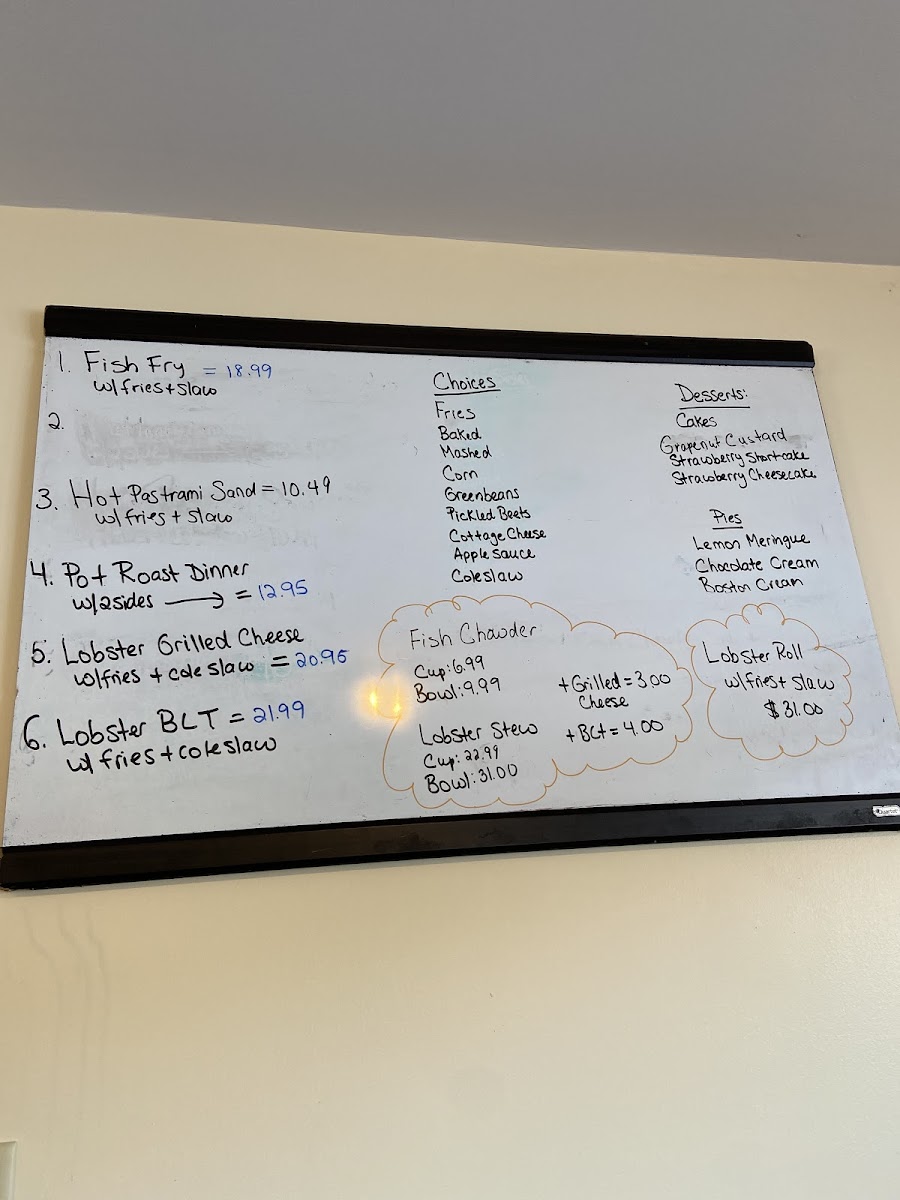 1. Fish Fry = 18.99
w/fries + slaw
2.
3. Hot Pastrami Sand = 10.49
w/ fries + slaw
4. Pot Roast Dinner
w/2sides → = 12.95
5. Lobster Grilled Cheese
w/fries + cole slaw = 20.95
6. Lobster BLT = 21.99
w/ fries + coleslaw
Choices
Fries
Baked
Mashed
Corn
Greenbeans
Pickled Beets
Cottage Cheese
Apple sauce
Coleslaw
Desserts:
Cakes
Grapenut Custard
Strawberry Shortcake
Strawberry Cheesecake
Pies
Lemon Meringue
Chocolate Cream
Boston Cream
Fish Chowder
Cup: 6.99
Bowl: 9.99
+ Grilled = 3.00
Cheese
Lobster Stew
+ BLt = 4.00
Cup: 22.99
Bowl: 31.00
Lobster Roll
w/fries + slaw
$31.00